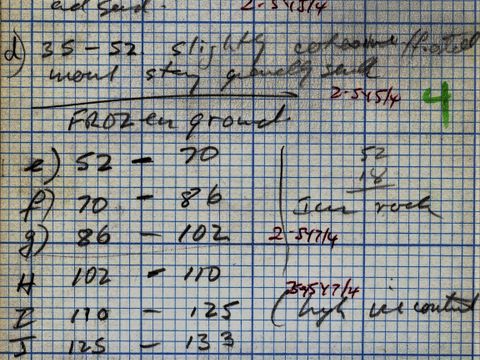 2-545/4
d) 35 - 52 slightly cohesive / frosted
moist silty gravelly sand
2-545/4
4
FROZEN ground
e) 52 - 70
52
18
f) 70 - 86
rock
g) 86 - 102
2-547/4
H 102 - 110
547/4
I 110 - 125
(high ice content
J 125 - 133